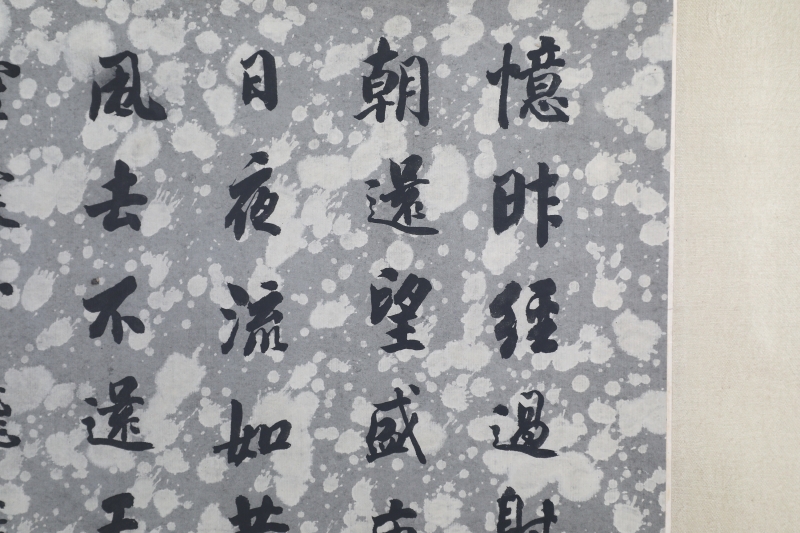 憶昨經過
朝還望盛
日夜流如
風去不還